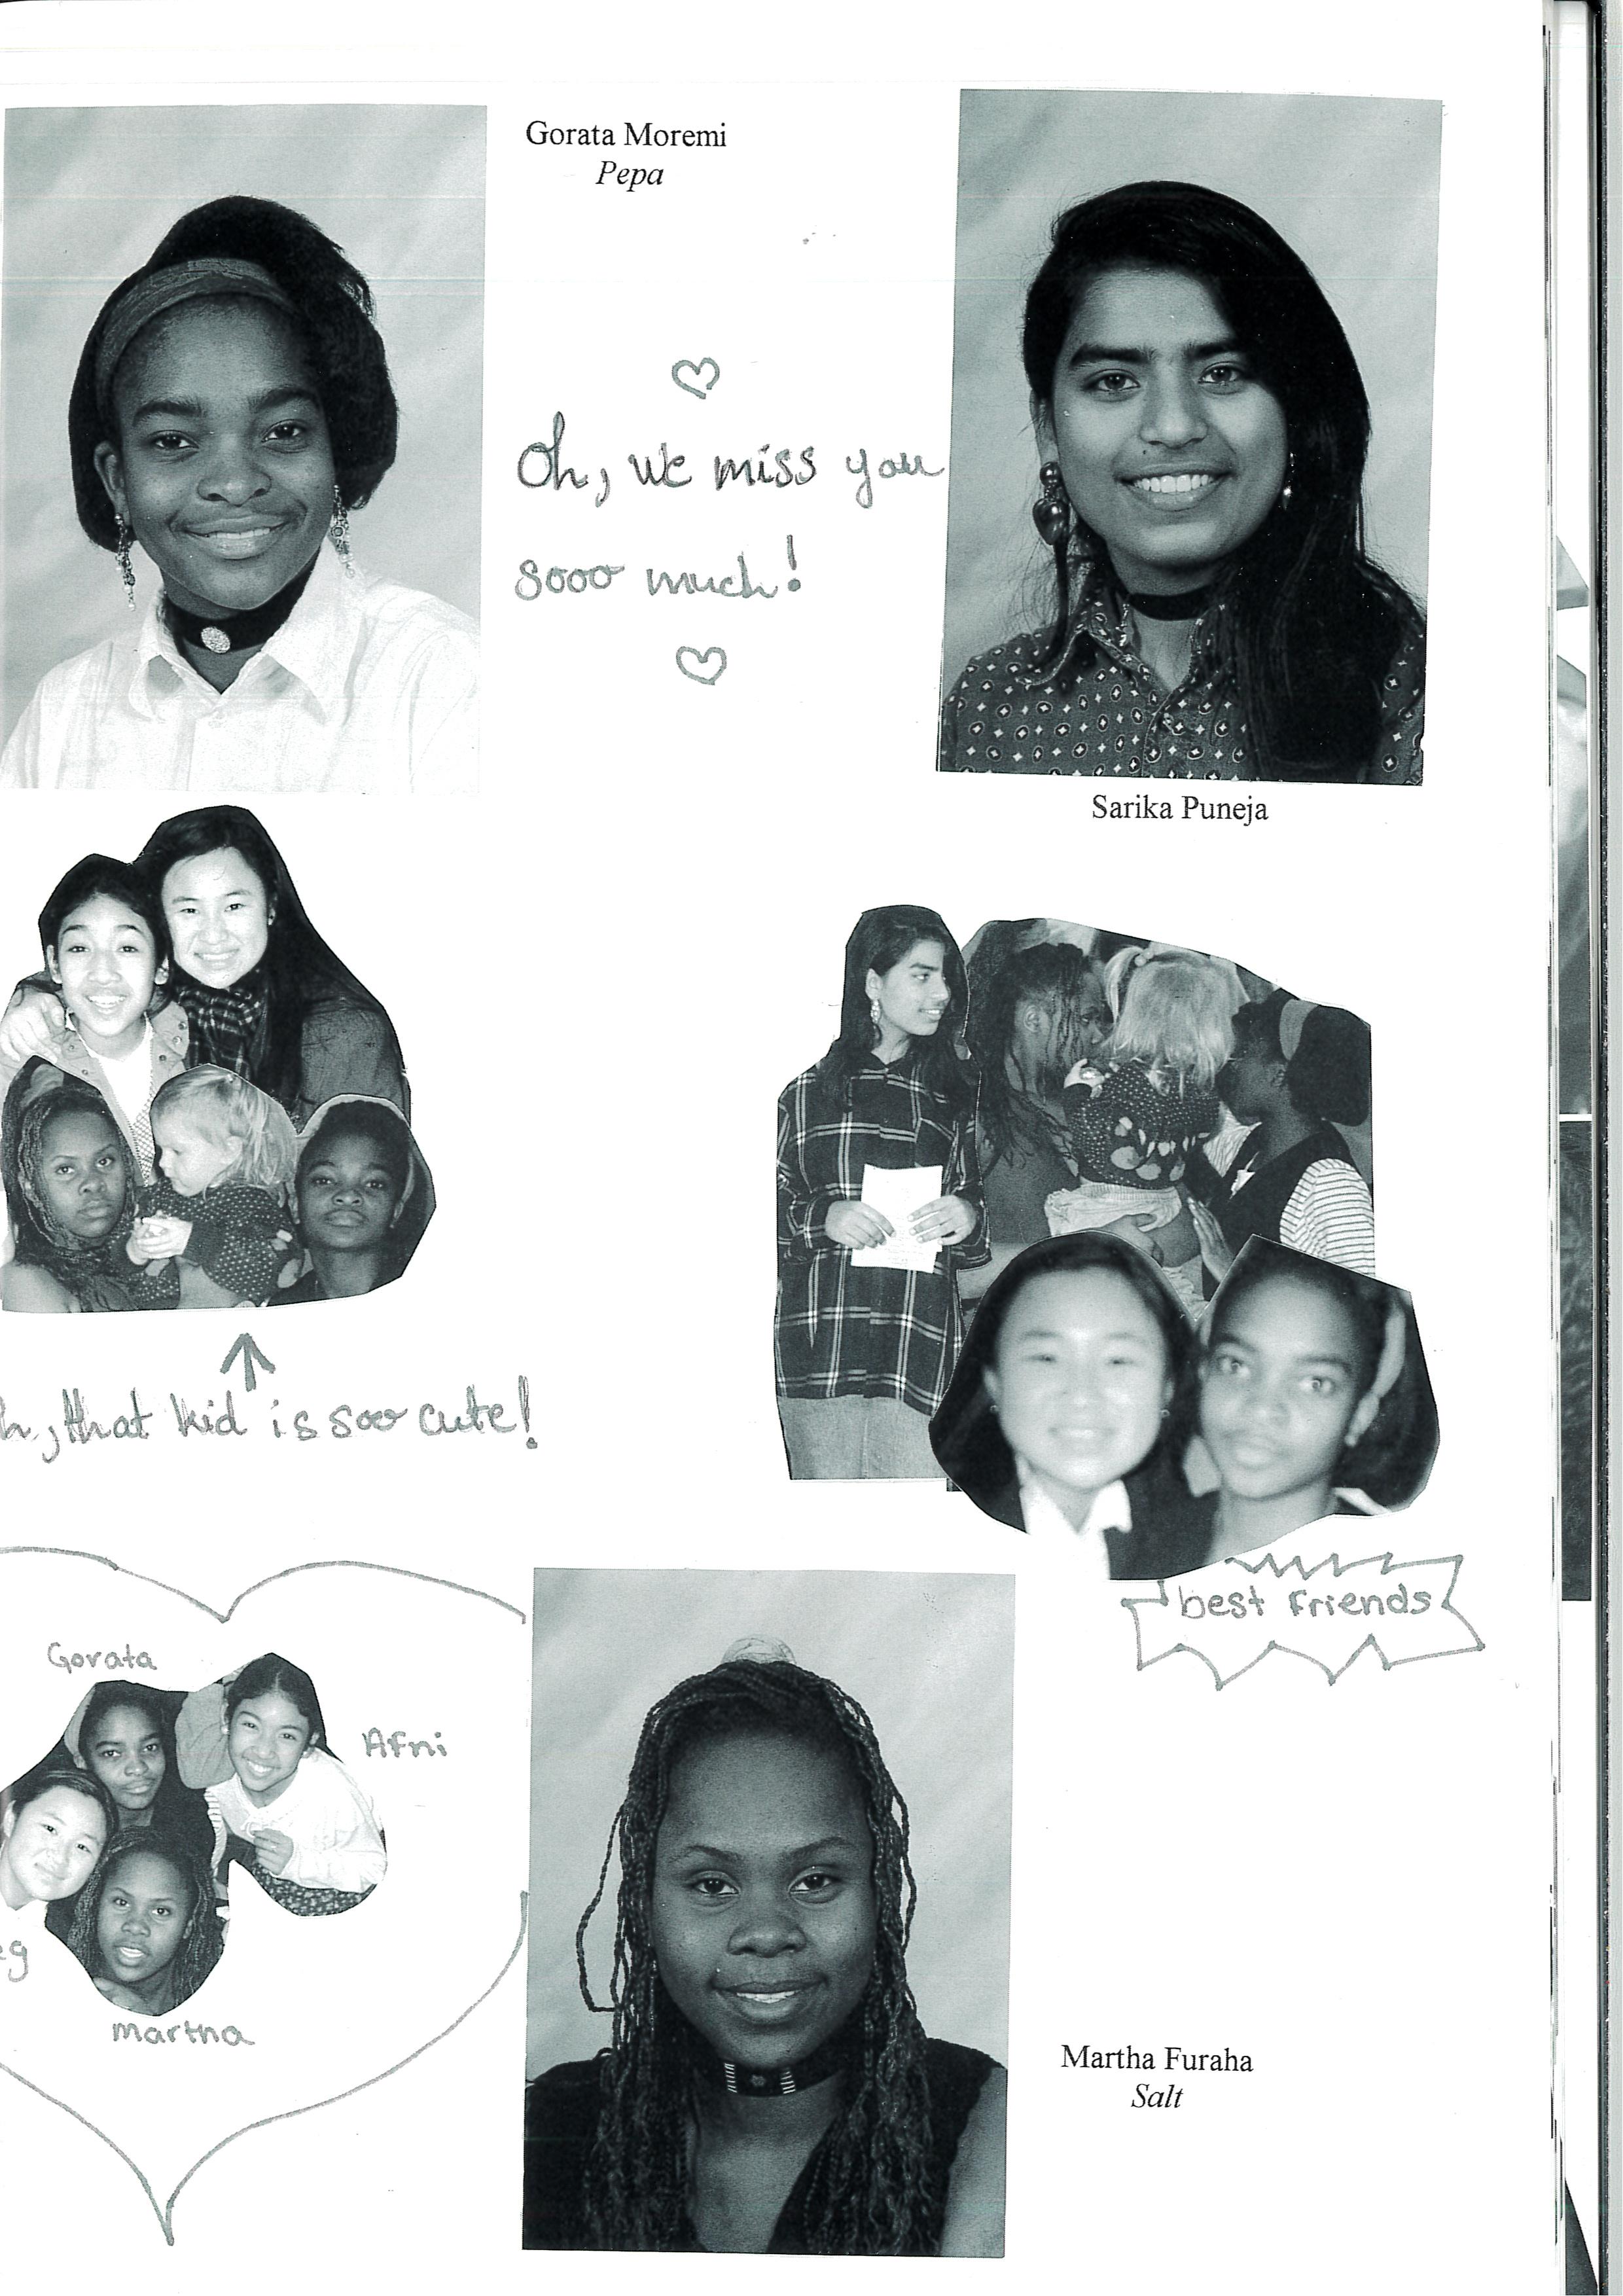 Gorata Moremi
Pepa
Oh, we miss you
sooo much!
Sarika Puneja
that kid is soo cute!
best friends
Gorata
Afni
martha
Martha Furaha
Salt